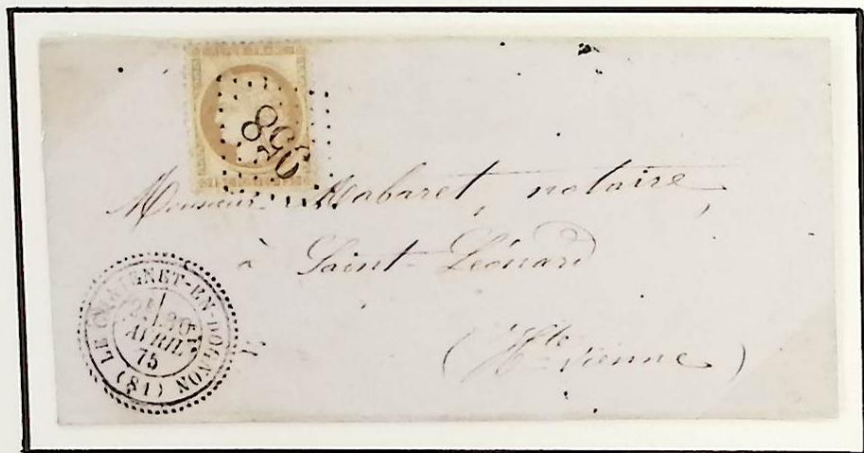 Monsieur Mabaret, notaire,
à Saint-Léonard
(Hte Vienne)
LE EN-DOGNON (81)
AVRIL
75